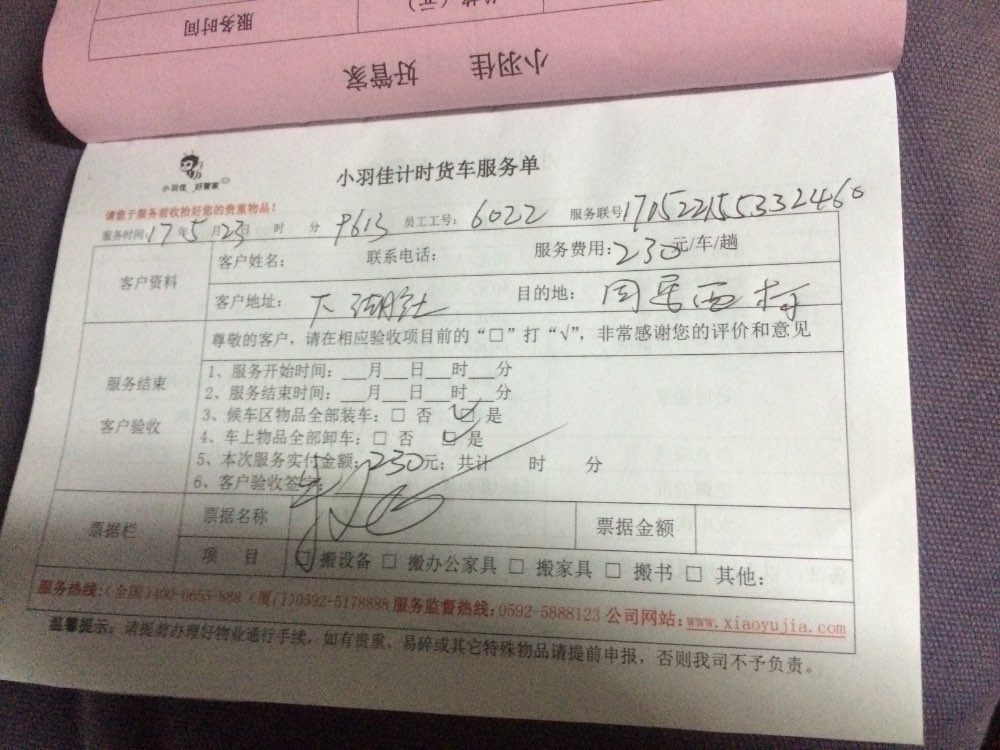 服务时间
价格(元)
小羽佳 好管家
小羽佳 好管家
小羽佳计时货车服务单
请您于服务前收拾好您的贵重物品！
服务时间:17年5月23日 时 分 9613 员工工号: 6022 服务联号171522155332460
客户资料
客户姓名: 联系电话: 服务费用:230元/车/趟
客户地址: 下湖社 目的地:
尊敬的客户，请在相应验收项目前的“□”打“√”，非常感谢您的评价和意见
服务结束
客户验收
1、服务开始时间：__月__日__时__分
2、服务结束时间：__月__日__时__分
3、候车区物品全部装车：□ 否 □ 是
4、车上物品全部卸车：□ 否 □ 是
5、本次服务实付金额：230元；共计 时 分
6、客户验收签字：
票据栏
票据名称 票据金额
项 目 □ 搬设备 □ 搬办公家具 □ 搬家具 □ 搬书 □ 其他：
服务热线:(全国)400-6655-888 (厦门)0592-5178888 服务监督热线:0592-5888123 公司网站:www.xiaoyujia.com
温馨提示：请提前办理好物业通行手续，如有贵重、易碎或其它特殊物品请提前申报，否则我司不予负责。